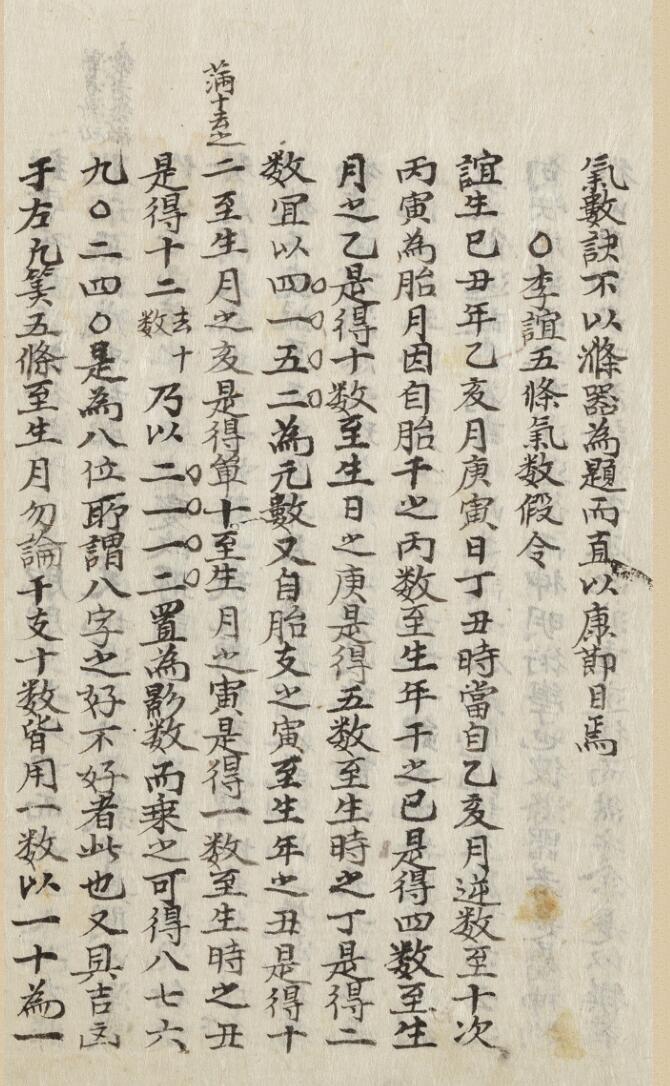 氣數訣不以滌器為題而直以康節目焉
○李誼五條氣数假令
誼生巳丑年乙亥月庚寅日丁丑時當自乙亥月逆数至十次
丙寅為胎月因自胎干之丙数至生年干之巳是得四数至生
月之乙是得十数至生日之庚是得五数至生時之丁是得二
数宜以四一五二為元數又自胎支之寅至生年之丑是得十
二至生月之亥是得單十至生月之寅是得一数至生時之丑
滿十去之
是得十二去十数乃以二一一二置為影数而乗之可得八七六
九〇二四〇是為八位所謂八字之好不好者此也又具吉凶
于左凡筭五條至生月勿論干支十数皆用一数以一十為一